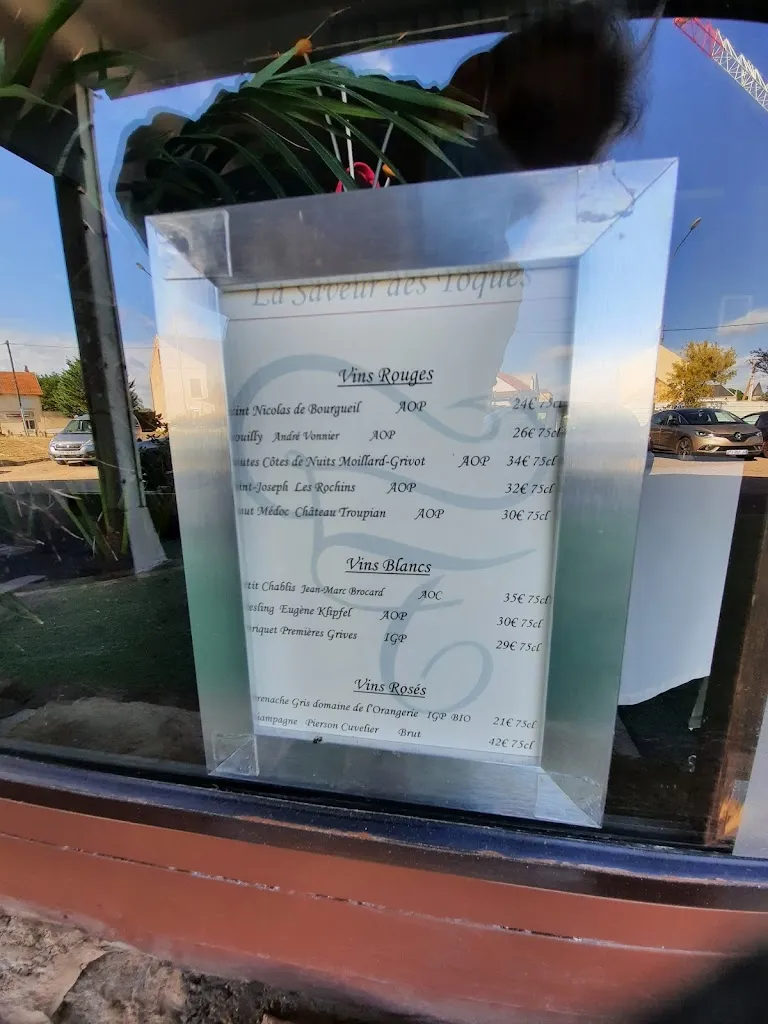 La Saveur des Toques
Vins Rouges
int Nicolas de Bourgueil AOP 24€ 75cl
ouilly André Vonnier AOP 26€ 75cl
utes Côtes de Nuits Moillard-Grivot AOP 34€ 75cl
int-Joseph Les Rochins AOP 32€ 75cl
aut Médoc Château Troupian AOP 30€ 75cl
Vins Blancs
tit Chablis Jean-Marc Brocard AOC 35€ 75cl
esling Eugène Klipfel AOP 30€ 75cl
riquet Premières Grives IGP 29€ 75cl
Vins Rosés
renache Gris domaine de l'Orangerie IGP BIO 21€ 75cl
ampagne Pierson Cuvelier Brut 42€ 75cl